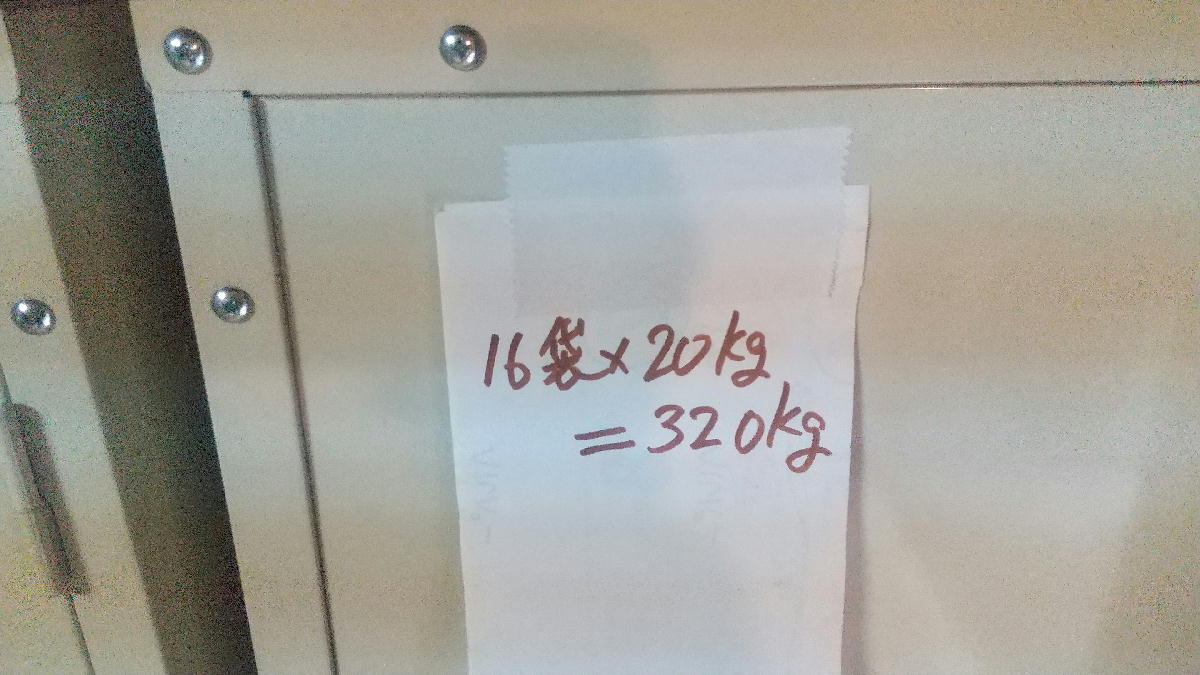 16袋×20kg
=320kg